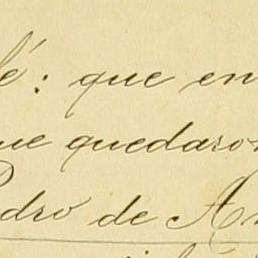 é: que en
ue quedaron
edro de An